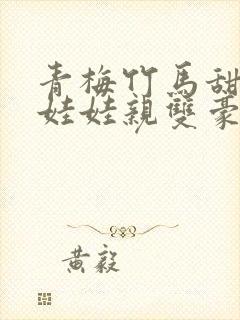 青梅竹馬甜
娃娃親雙豪
黄毅